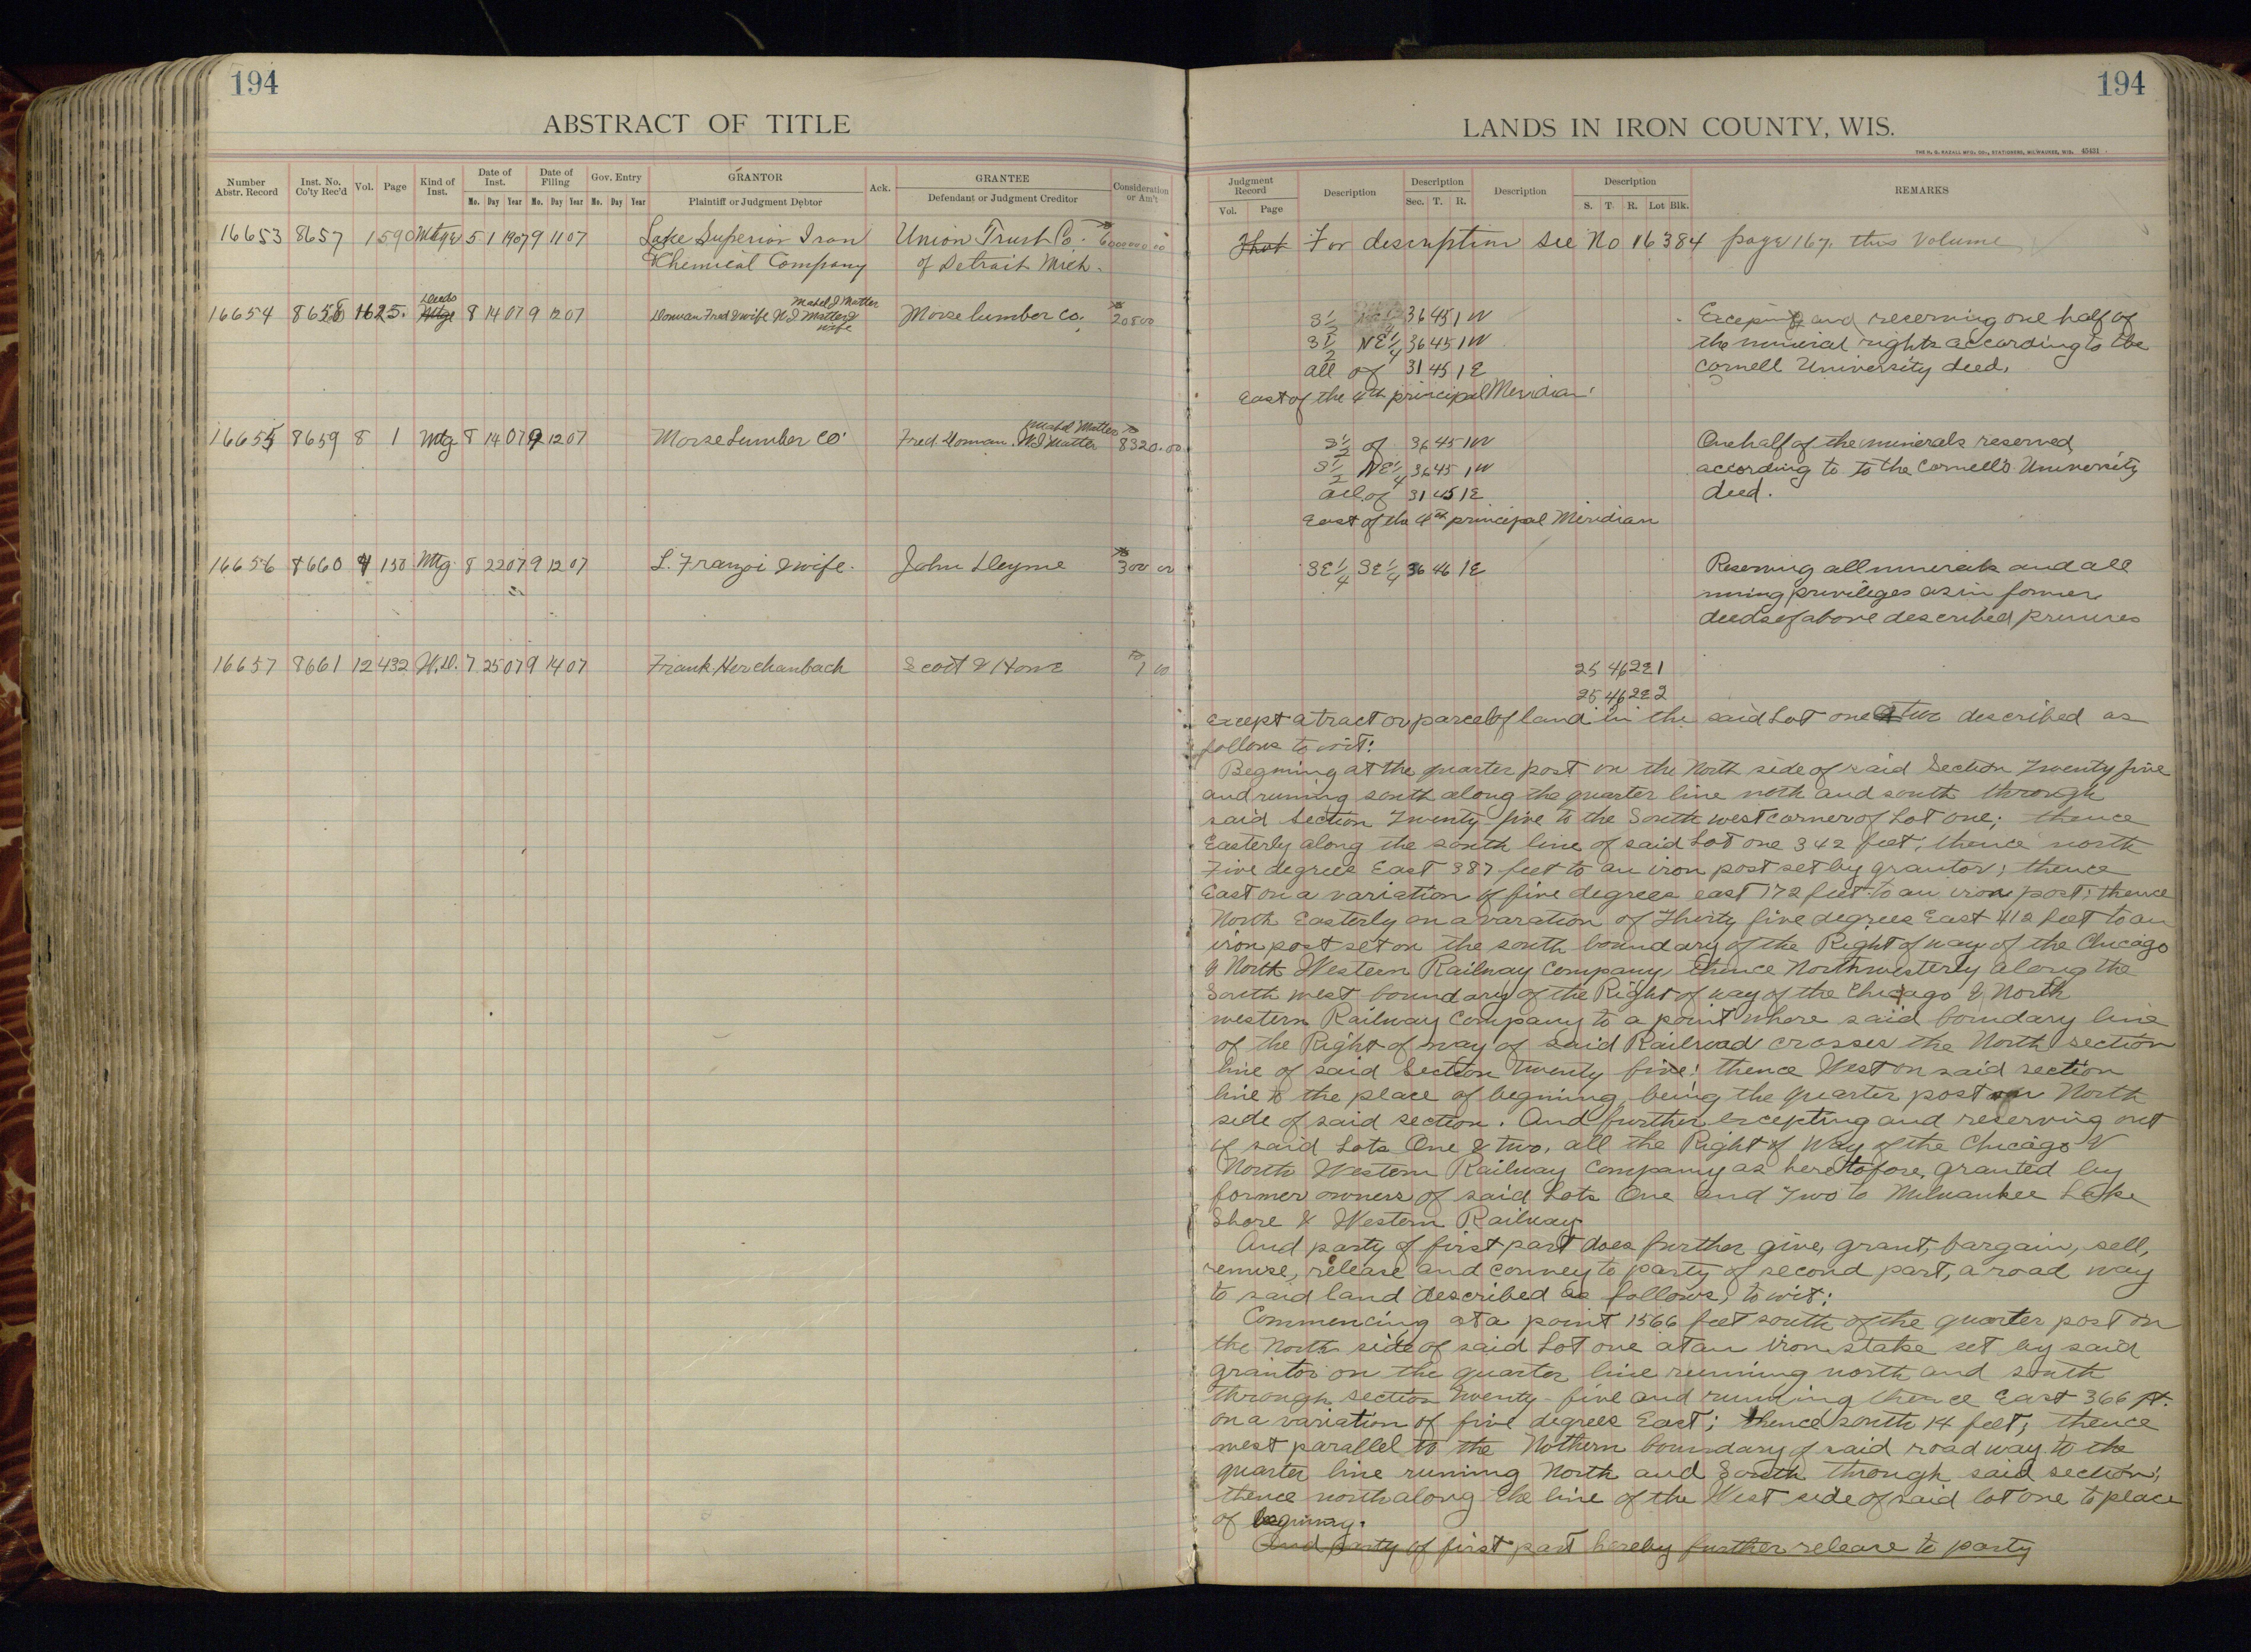 194
ABSTRACT OF TITLE
Number Abstr. Record
Inst. No. Co'ty Rec'd
Vol.
Page
Kind of Inst.
Date of Inst.
Mo. Day Year
Date of Filing
Mo. Day Year
Gov. Entry
Mo. Day Year
GRANTOR
Plaintiff or Judgment Debtor
Ack.
GRANTEE
Defendant or Judgment Creditor
Consideration or Am't
16653 8657 1 590 Mtge 5 1 1907 9 11 07 Lake Superior Iron Union Trust Co.
Chemical Company of Detroit Mich.
Deeds Mabel J Matter
16654 8658 16 25 Mtge 8 14 07 9 12 07 Doman Fred & wife N J Matter & Morse Lumber Co. 20800
wife
Mabel Matter
16655 8659 8 1 Mtg 8 14 07 9 12 07 Morse Lumber Co Fred Doman. N J Matter 8320.00
16656 8660 4 150 Mtg. 8 22 07 9 12 07 L. Franzoi & wife. John Dleyme 300 00
16657 8661 12 432 W.D. 7 25 07 9 14 07 Frank Herchanbach Scott & Howe 1 00
194
LANDS IN IRON COUNTY, WIS.
THE H. G. RAZALL MFG. CO., STATIONERS, MILWAUKEE, WIS. 45431
Judgment Record
Vol. Page
Description
Description
Sec. T. R.
Description
Description
S. T. R. Lot Blk.
REMARKS
For description see No 16384 page 167. this Volume
S 1/2 36 45 1 W Excepting and reserving one half of
S 1/2 NE 1/4 36 45 1 W the mineral rights according to the
all of 31 45 1 E Cornell University deed.
East of the 4th principal Meridian.
S 1/2 of 36 45 1 W One half of the minerals reserved
S 1/2 NE 1/4 36 45 1 W according to to the Cornell's University
all of 31 45 1 E deed.
East of the 4th principal Meridian
SE 1/4 SE 1/4 36 46 1 E Reserving all minerals and all
mining privileges as in former
deeds of above described primises
25 46 2 E 1
25 46 2 E 2
Except a tract or parcel of land in the said Lot one & two described as
follows to wit:
Begining at the quarter post on the North side of said Section Twenty five
and runing south along the quarter line north and south through
said Section Twenty-five to the South west corner of Lot one; thence
Easterly along the south line of said Lot one 342 feet; thence north
Five degrees East 387 feet to an iron post set by grantor; thence
East on a variation of five degrees east 172 feet to an iron post; thence
North Easterly on a varation of Thirty five degrees East 412 feet to an
iron post set on the south boundary of the Right of way of the Chicago
& North Western Railway Company, thence Northwesterly along the
South west boundary of the Right of way of the Chicago & North
western Railway Company to a point where said boundary line
of the Right of way of said Railroad crosses the North section
line of said Section Twenty five; thence West on said section
line to the place of begining, being the quarter post on North
side of said section. And further excepting and reserving out
of said Lots One & two, all the Right of Way of the Chicago &
North Western Railway Company as heretofore, granted by
former owners of said Lots One and Two to Milwaukee Lake
Shore & Western Railway.
And party of first part does further give, grant, bargain, sell,
remise, release and convey to party of second part, a road way
to said land described as follows, to wit:
Commencing at a point 1566 feet south of the quarter post on
the North side of said Lot one at an iron stake set by said
grantor on the quarter line running north and south
through section Twenty-five and running thence East 366 ft.
on a variation of five degrees East; thence south 14 feet; thence
west parallel to the Nothern boundary of said road way to the
quarter line runing North and South through said section;
thence north along the line of the West side of said lot one to place
of begining.
And party of first part hereby further release to party